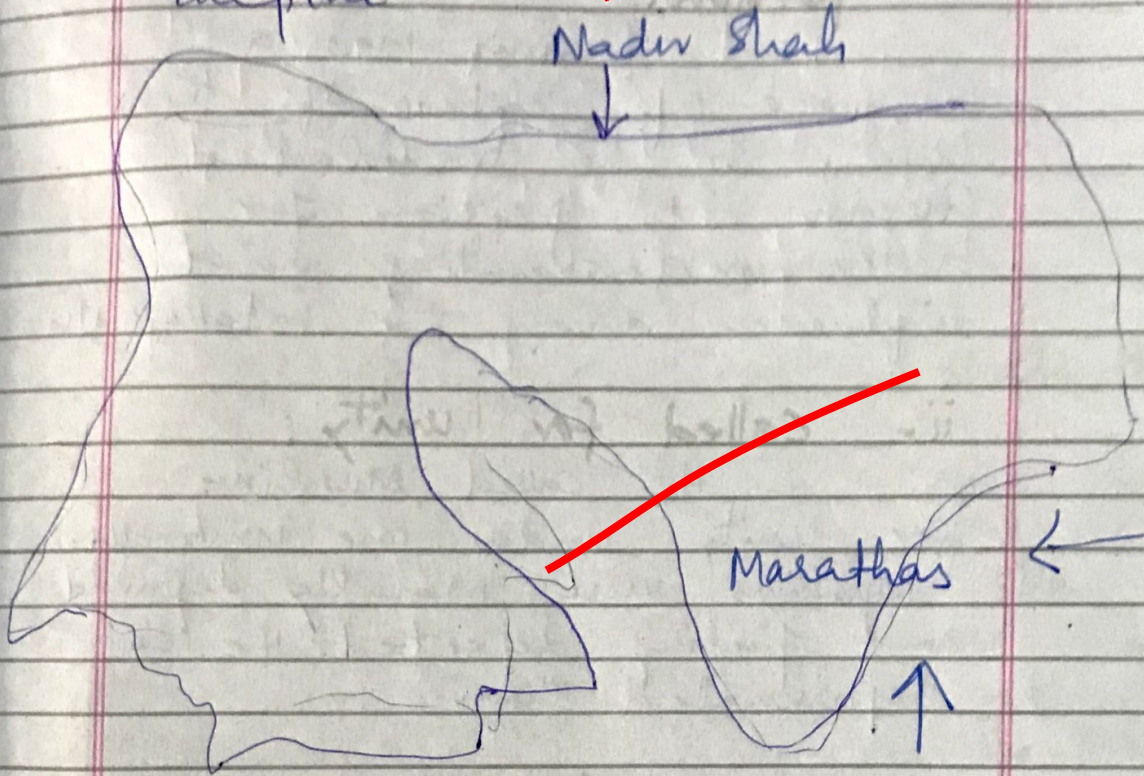 Nadir Shah
Marathas